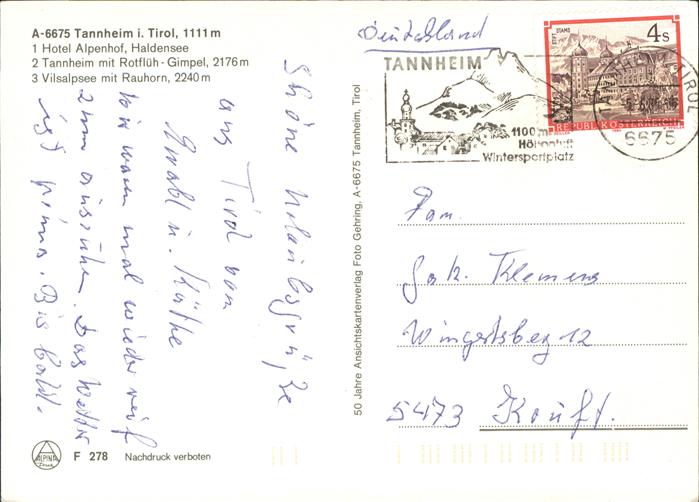 A-6675 Tannheim i. Tirol, 1111 m
1 Hotel Alpenhof, Haldensee
2 Tannheim mit Rotflüh - Gimpel, 2176 m
3 Vilsalpsee mit Rauhorn, 2240 m
Schöne Urlaubsgrüße
aus Tirol von
Ewald u. Käthe
Wir waren mal wieder reif
zum ausruhen. Das Wetter
ist prima. Bis bald.
ALPINA
Druck
F 278 Nachdruck verboten
50 Jahre Ansichtskartenverlag Foto Gehring, A-6675 Tannheim, Tirol
Deutschland
TANNHEIM
1100 m
Höhenluft
Wintersportplatz
STIFT STAMS
4 S
REPUBLIK ÖSTERREICH
TIROL
6675
Fam.
Jak. Klemens
Wingertsberg 12
5473 Kruft.